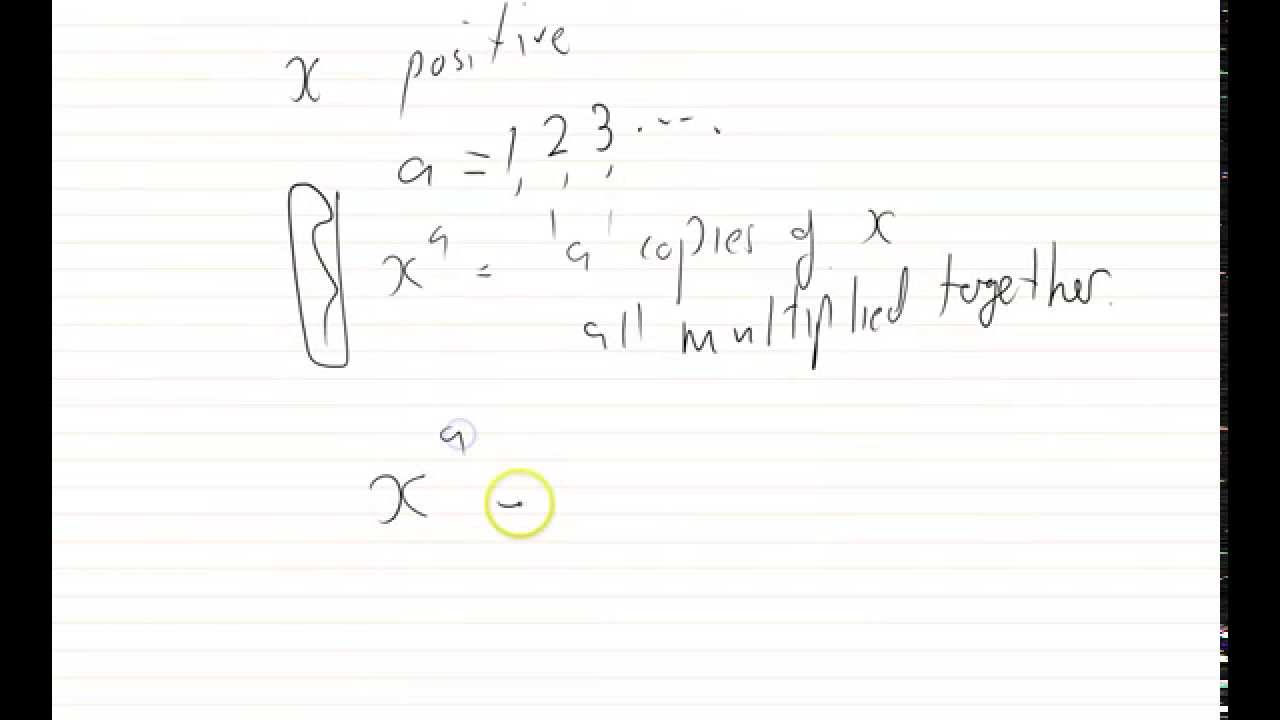 x positive
a = 1, 2, 3, ....
xᵃ = 'a' copies of x
all multiplied together.
xᵃ -